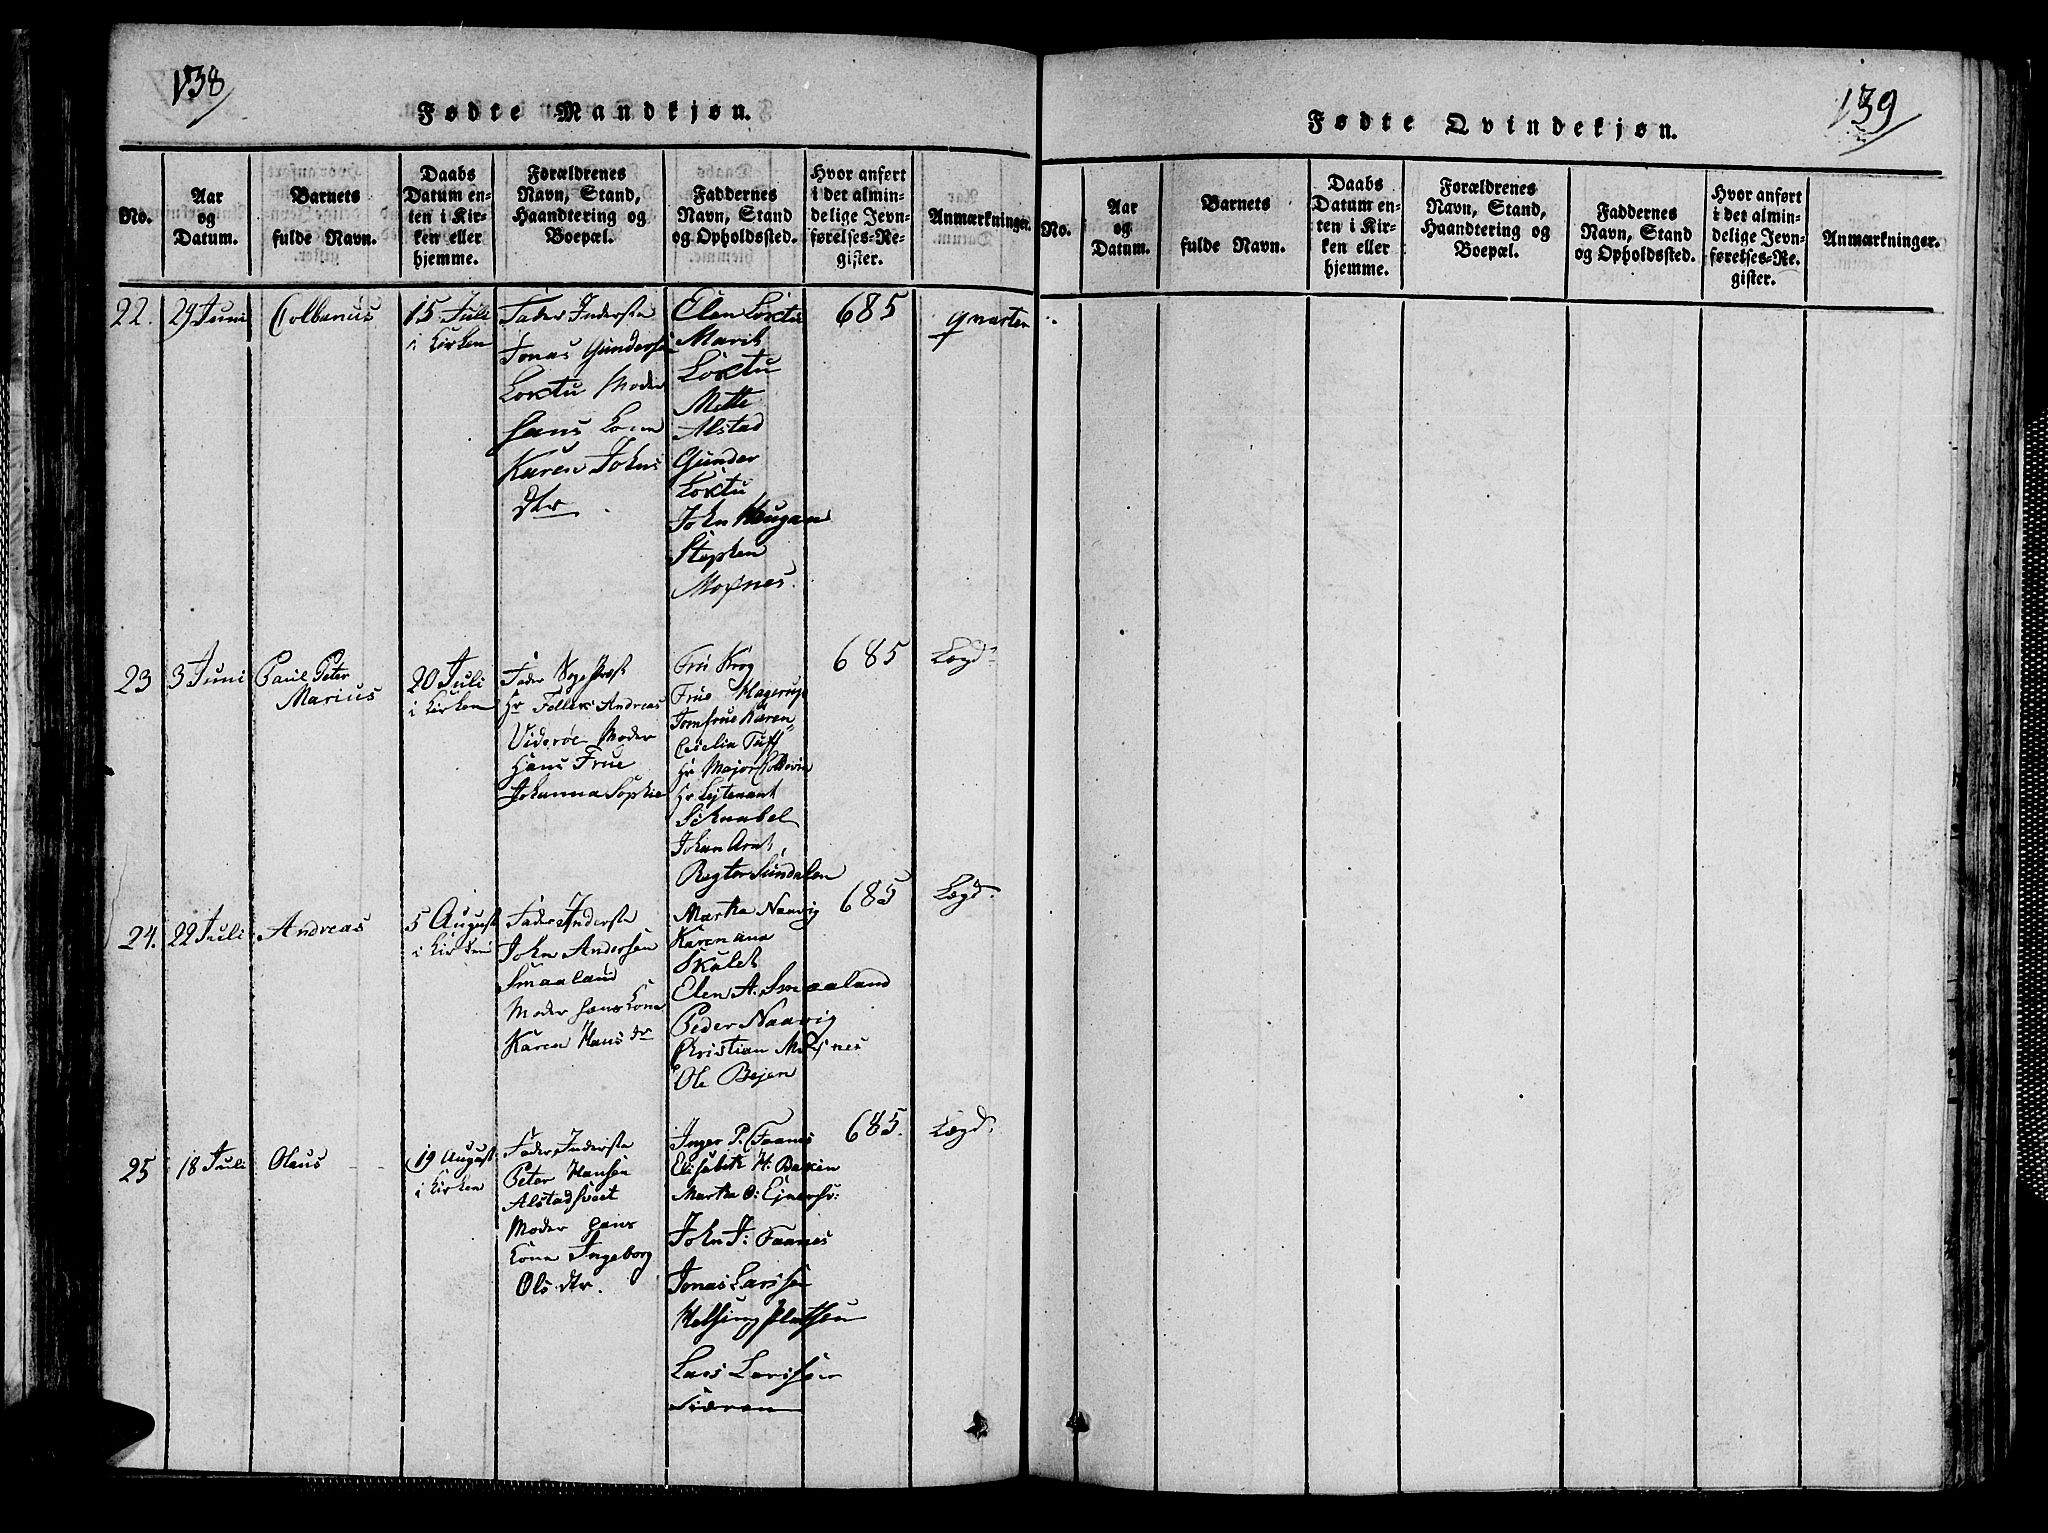 138
Fødte Mandkjøn.
No.
Aar
og
Datum.
Barnets
fulde Navn.
Daabs
Datum en-
ten i Kir-
ken eller
hjemme.
Forældrenes
Navn, Stand,
Haandtering og
Boepæl.
Faddernes
Navn, Stand
og Opholdssted.
Hvor anført
i det almin-
delige Jevn-
førelses-Re-
gister.
Anmærkninger.
22.
29 Juni
Colbanus
15 Juli
i Kirken
Fader Inderste
Jonas Gundersen
Loxtu Moder
hans Kone
Karen Johns
dtr
Elen Loxtu
Marit
Loxtu
Mette
Alstad
Gunder
Loxtu
John Haugan
Stephen
Moxnes.
685
qvarten
23
3 Juni
Paul Peter
Marius
20 Juli
i Kirken
Fader
Hr Andreas
Viderøe Moder
Hans Frue
Johanna Sophie
Fru Krog
Frue Hagerup
Jomfrue Karen
Cecelia Tuff
Hr Major Coldevin
Hr Lejtenant
Schnabel
Johan Arnt
Regter Sundalen
685
Lægd
24.
22 Juli
Andreas
5 August
i Kirken
Fader Inderste
John Andersen
Smaaland
Moder hans Kone
Karen Hans dr
Martha Naavig
Karen ana
Skalet
Elen A. Smaaland
Peder Naavig
Christian Moxnes
Ole Bejan
685
Lægd.
25
18 Juli
Olaus
19 August
i Kirken
Fader Inderste
Peter Hansen
Alstadsveet
Moder hans
Kone Ingeborg
Ols dtr.
Inger P. Faanes
Elisabeth H. Baxen
Martha O: Ejnersv:
John J: Faanes
Jonas Larssen
Helsing
Lars Larssen
685.
Lægd.
139
Fødte Qvindekjøn.
No.
Aar
og
Datum.
Barnets
fulde Navn.
Daabs
Datum en-
ten i Kir-
ken eller
hjemme.
Forældrenes
Navn, Stand,
Haandtering og
Boepæl.
Faddernes
Navn, Stand
og Opholdssted.
Hvor anført
i det almin-
delige Jevn-
førelses-Re-
gister.
Anmærkninger.